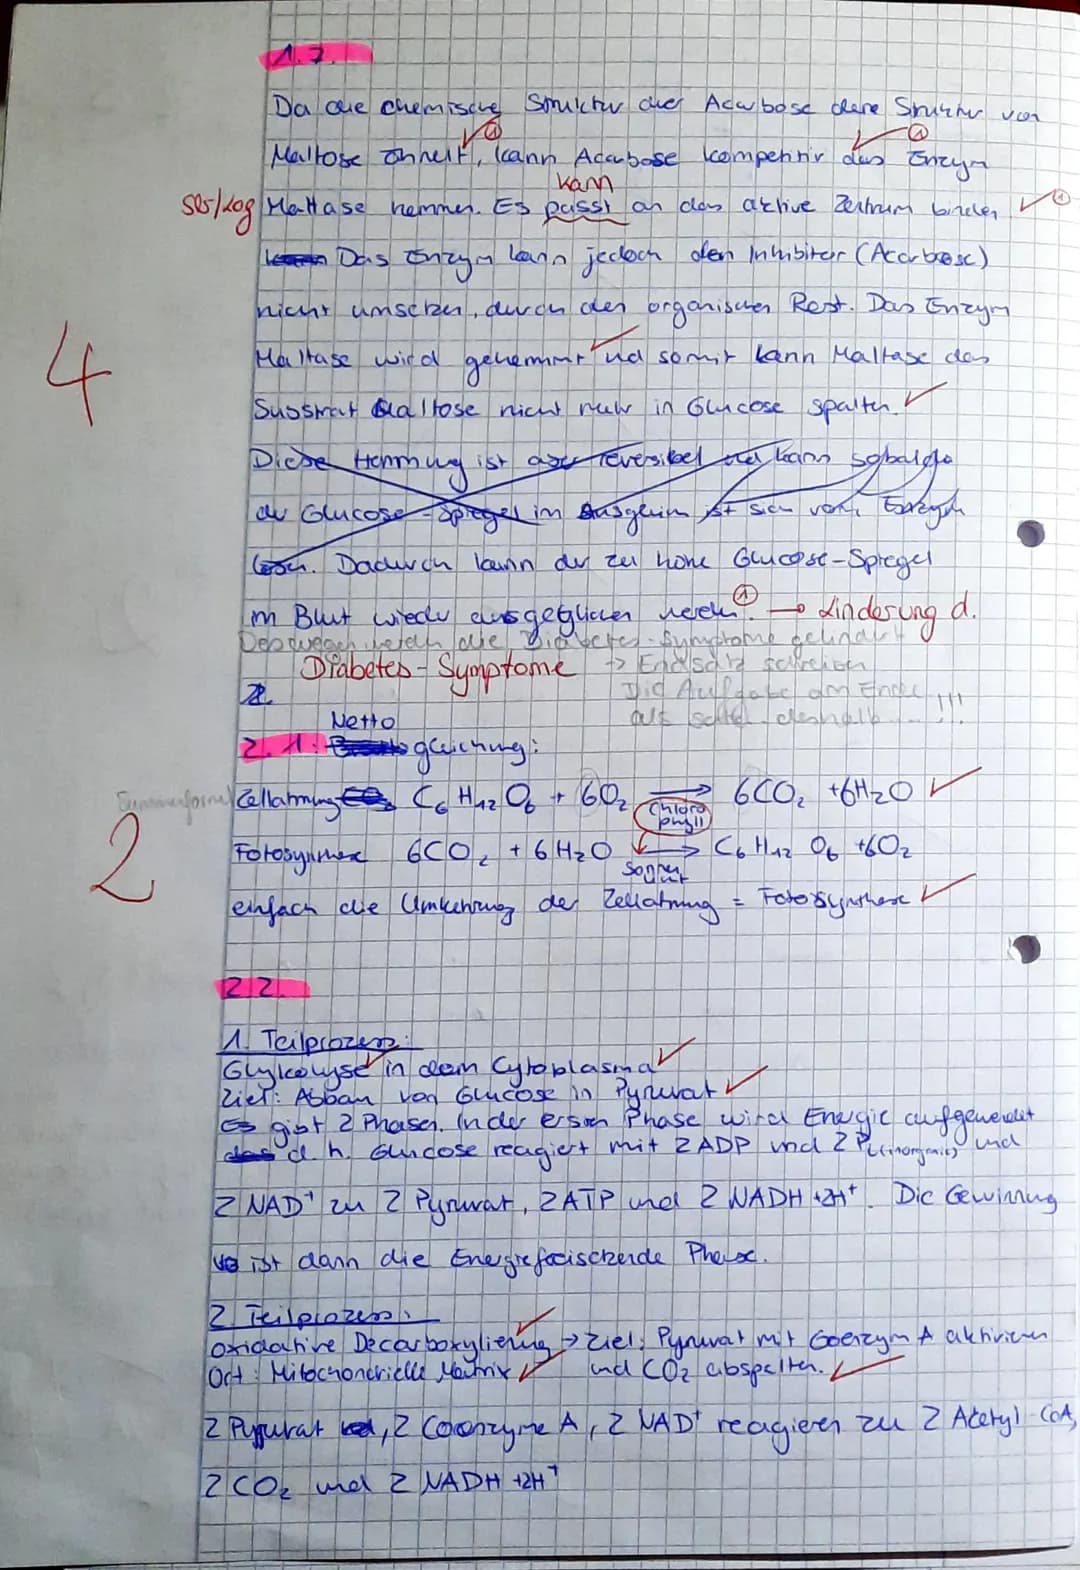 1.7.
Da die chemische Struktur der Acarbose der Struktur von
Maltose ähnelt, kann Acarbose kompetitiv das Enzym
kann
SB/Log Maltase hemmen. Es passt an das aktive Zentrum binden
Das Enzym kann jedoch den Inhibitor (Acarbose)
nicht umsetzen, durch den organischen Rest. Das Enzym
Maltase wird gehemmt und somit kann Maltase das
4
Substrat Maltose nicht mehr in Glucose spalten.
Diese Hemmung ist aber reversibel und kann sobald
der Glucose-Spiegel im Ausgleich ist sich vom Enzym
lösen. Dadurch kann der zu hohe Glucose-Spiegel
im Blut wieder ausgeglichen werden. → Linderung d.
Deswegen werden die Diabetes-Symptome gelindert
Diabetes-Symptome → Endsatz schreiben
2. Die Aufgabe am Ende
Netto
2.1. gleichung:
Summenformel Zellatmung C6H12O6 + 6O2 → 6CO2 +6H2O
Chloro
phyll
2
Fotosynthese 6CO2 + 6H2O → C6H12O6 +6O2
einfach die Umkehrung der Zellatmung = Fotosynthese
2.2.
1. Teilprozess:
Glykolyse in dem Cytoplasma
Ziel: Abbau von Glucose in Pyruvat
Es gibt 2 Phasen. In der ersten Phase wird Energie aufgewendet
d. h. Glucose reagiert mit 2 ADP und 2 Pi(inorganic) und
2 NAD+ zu 2 Pyruvat, 2 ATP und 2 NADH +2H+. Die Gewinnung
ist dann die Energiefreisetzende Phase.
2. Teilprozess:
oxidative Decarboxylierung → Ziel: Pyruvat mit Coenzym A aktivieren
Ort: Mitochondrielle Matrix und CO2 abspalten.
2 Pyruvat, 2 Coenzyme A, 2 NAD+ reagieren zu 2 Acetyl-CoA,
2 CO2 und 2 NADH +2H+